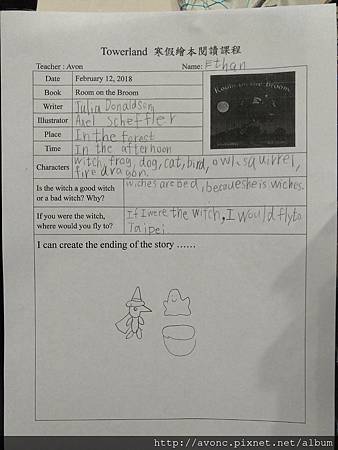 Towerland 寒假繪本閱讀課程
Teacher : Avon Name: Ethan
Date February 12, 2018
Book Room on the Broom
Writer Julia Donaldson
Illustrator Axel Scheffler
Place In the forest
Time In the afternoon
Characters witch, frog, dog, cat, bird, owl, squirrel,
fire dragon.
Room on the Broom
Is the witch a good witch
or a bad witch? Why?
wiches are bed, because she is wiches.
If you were the witch,
where would you fly to?
If I were the witch, I would fly to
Taipei
I can create the ending of the story ……
http://avonc.pixnet.net/album